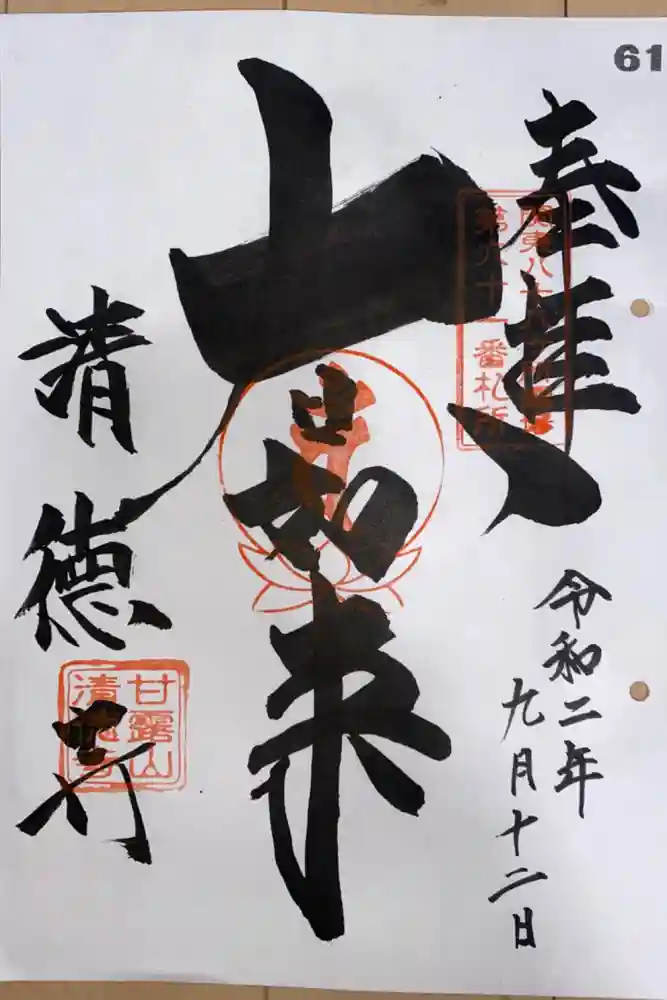 61
奉拝
令和二年
九月十二日
大日如来
第六十一番札所
清徳寺
甘露山
清徳寺